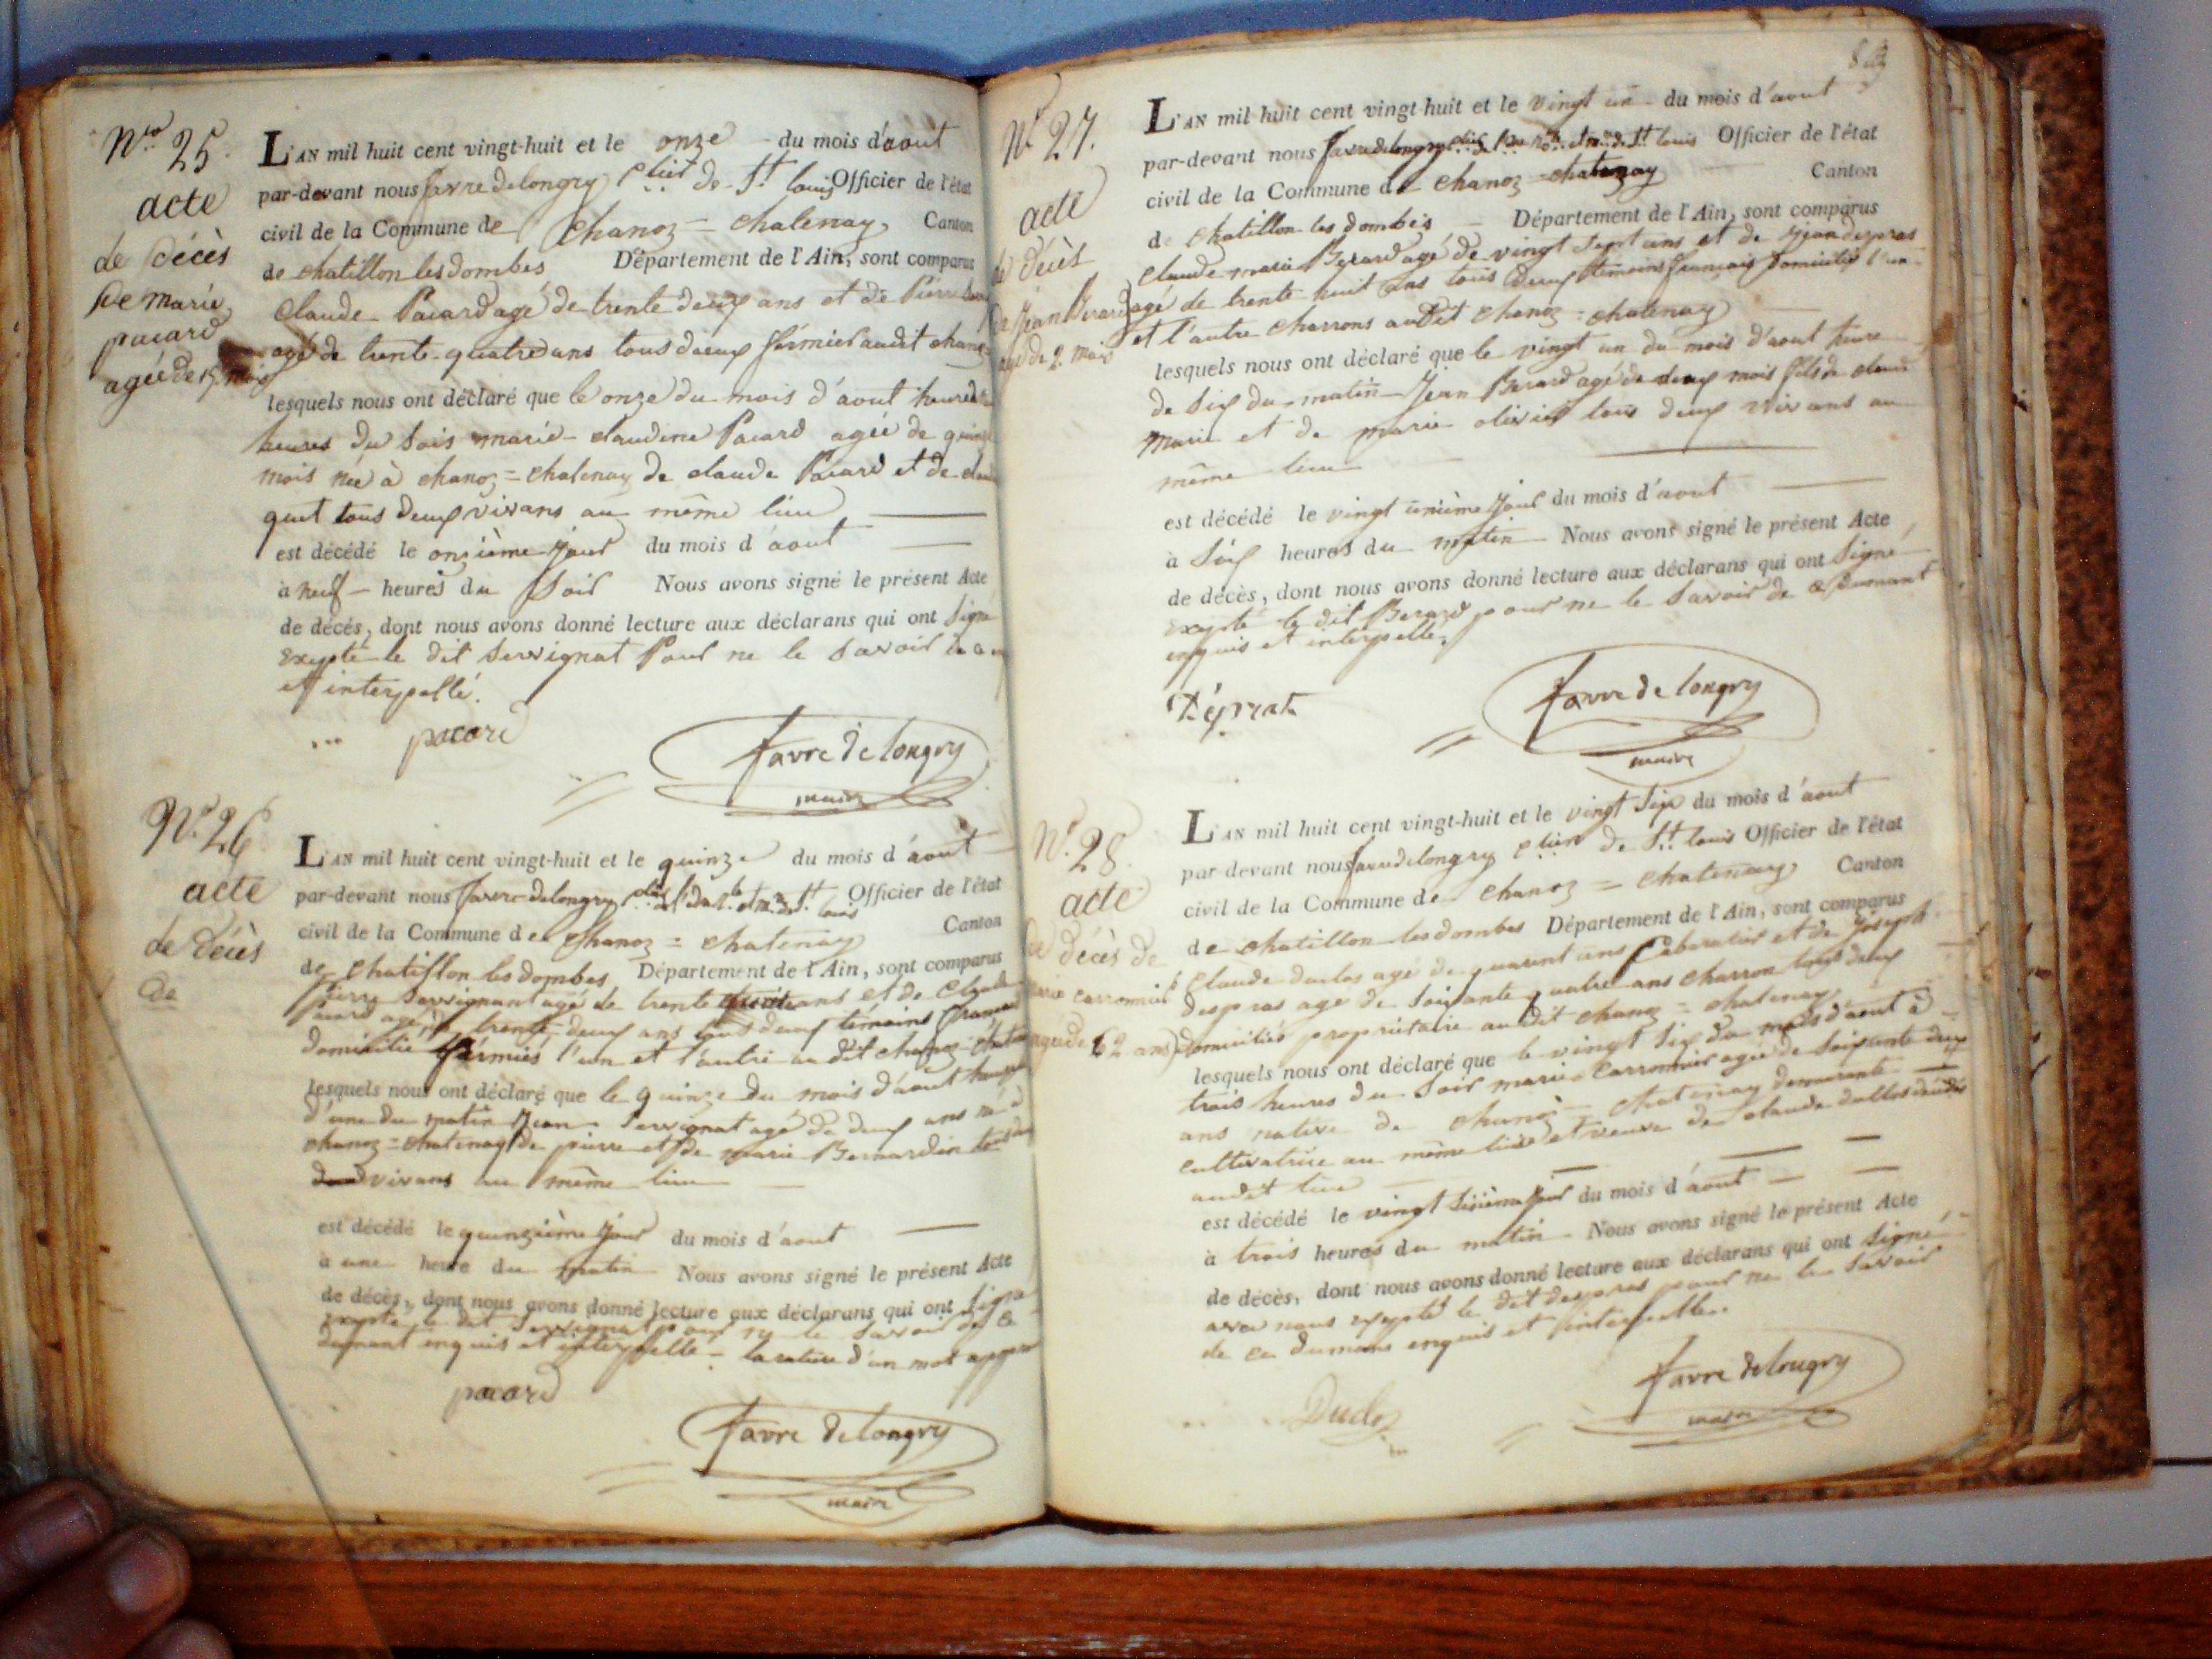 Nro 25.
acte
de Décès
De marie
pacard
agée de 15 mois
L'AN mil huit cent vingt-huit et le onze du mois d'aout
par-devant nous favre delongry de St louis Officier de l'état
civil de la Commune de Chanoz = chatenay Canton
de chatillon les dombes Département de l'Ain, sont comparus
Claude Pacard agé de trente deux ans et de Pierre
agé de trente-quatre ans tous deux fermier audit chanoz
lesquels nous ont déclaré que le onze du mois d'aout
heures du soir marie claudine Pacard agée de quinze
mois née à chanoz = chatenay de claude Pacard et de
tous deux vivans au même lieu
est décédé le onzième jour du mois d'aout
à neuf heures du Soir Nous avons signé le présent Acte
de décès, dont nous avons donné lecture aux déclarans qui ont Signé
exepté le dit Servignat Pour ne le savoir
et interpellé.
pacard
favre de longry
maire
No. 26
acte
de Décès
de
L'AN mil huit cent vingt-huit et le quinze du mois d'aout
par-devant nous favre delongry St louis Officier de l'état
civil de la Commune de Chanoz = chatenay Canton
de Chatillon les dombes Département de l'Ain, sont comparus
Pierre Servignant agé de trente ans et de Claude
Pacard agé de trente-deux ans tous deux témoins français
domicilié fermiés l'un et l'autre au dit chanoz
lesquels nous ont déclaré que le quinze du mois d'aout
d'une du matin Jean Servignat agé de deux ans né à
chanoz = chatenay de pierre et de marie Bernardin tous
vivans au même lieu
est décédé le quinzième jour du mois d'aout
à une heure du matin Nous avons signé le présent Acte
de décès, dont nous avons donné lecture aux déclarans qui ont Signé
exepté le dit Servignat pour ne le savoir de ce
dumant enquis et interpellé = la rature d'un mot
pacard
favre de longry
maire
N. 27.
acte
de décès
de Jean Berard
agé de 2. mois
L'AN mil huit cent vingt-huit et le vingt un du mois d'aout
par-devant nous favre delongry St louis Officier de l'état
civil de la Commune de Chanoz = chatenay Canton
de Chatillon les dombes Département de l'Ain, sont comparus
Claude marie Berard agé de vingt sept ans et de Jean despras
agé de trente huit ans tous deux témoins français domiciliés l'un
et l'autre charrons audit chanoz = chatenay
lesquels nous ont déclaré que le vingt un du mois d'aout heure
de six du matin Jean Berard agé de deux mois fils de claude
marie et de marie olivier tous deux vivans au
même lieu
est décédé le vingt unième jour du mois d'aout
à Six heures du matin Nous avons signé le présent Acte
de décès, dont nous avons donné lecture aux déclarans qui ont Signé
exepté le dit Berard pour ne le savoir de ce dumant
enquis et interpellé.
Déprat
favre de longry
maire
N. 28.
acte
de décès de
marie carronnier
agée de 62 ans
L'AN mil huit cent vingt-huit et le vingt six du mois d'aout
par-devant nous favre delongry de St louis Officier de l'état
civil de la Commune de Chanoz = chatenay Canton
de chatillon les dombes Département de l'Ain, sont comparus
Claude agé de quarent ans et de Joseph
despras agé de soixante quatre ans charron tous deux
domiciliés propriétaire audit chanoz = chatenay
lesquels nous ont déclaré que le vingt six du mois d'aout à
trois heures du Soir marie Carronnier agée de soixante deux
ans native de chanoz = chatenay demeurante
cultivatrice au même lieu et veuve de claude décédé
audit lieu
est décédé le vingt sixième jour du mois d'aout
à trois heures du matin Nous avons signé le présent Acte
de décès, dont nous avons donné lecture aux déclarans qui ont Signé
avec nous exepté le dit despras pour ne le savoir
de ce enquis et interpellé.
favre delongry
maire